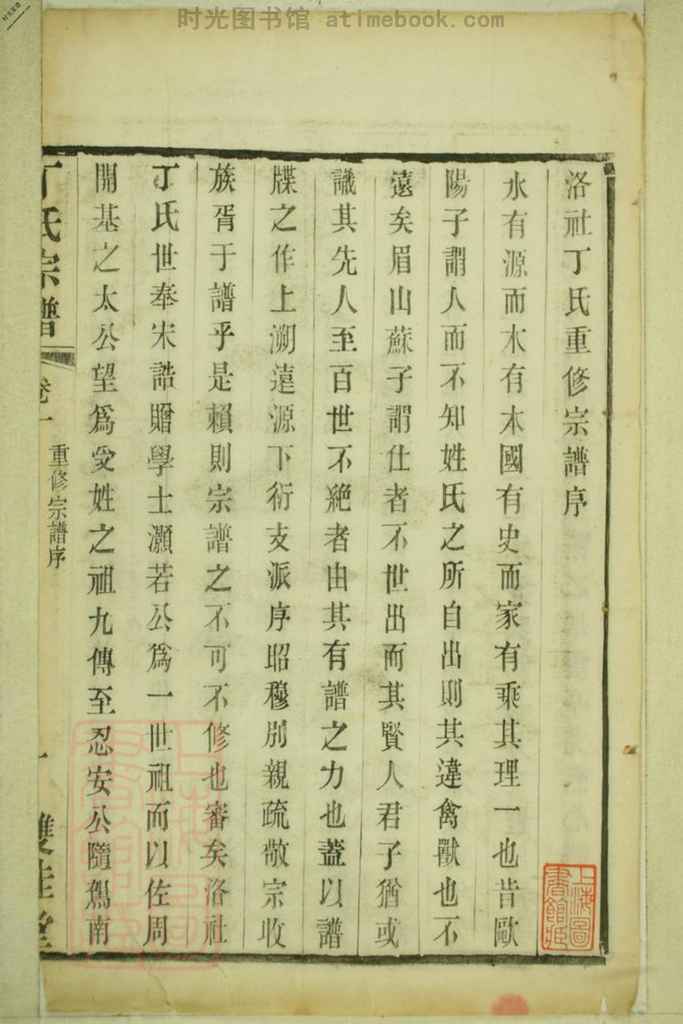 时光图书馆 atimebook.com
洛社丁氏重修宗譜序
水有源而木有本國有史而家有乘其理一也昔歐
陽子謂人而不知姓氏之所自出則其違禽獸也不
遠矣眉山蘇子謂仕者不世出而其賢人君子猶或
識其先人至百世不絕者由其有譜之力也蓋以譜
牒之作上溯遠源下衍支派序昭穆別親疏敬宗收
族胥于譜乎是賴則宗譜之不可不修也審矣洛社
丁氏世奉宋誥贈學士灝若公爲一世祖而以佐周
開基之太公望爲受姓之祖九傳至忍安公隨駕南
丁氏宗譜
卷一
重修宗譜序
一
雙桂堂
上海圖書館藏